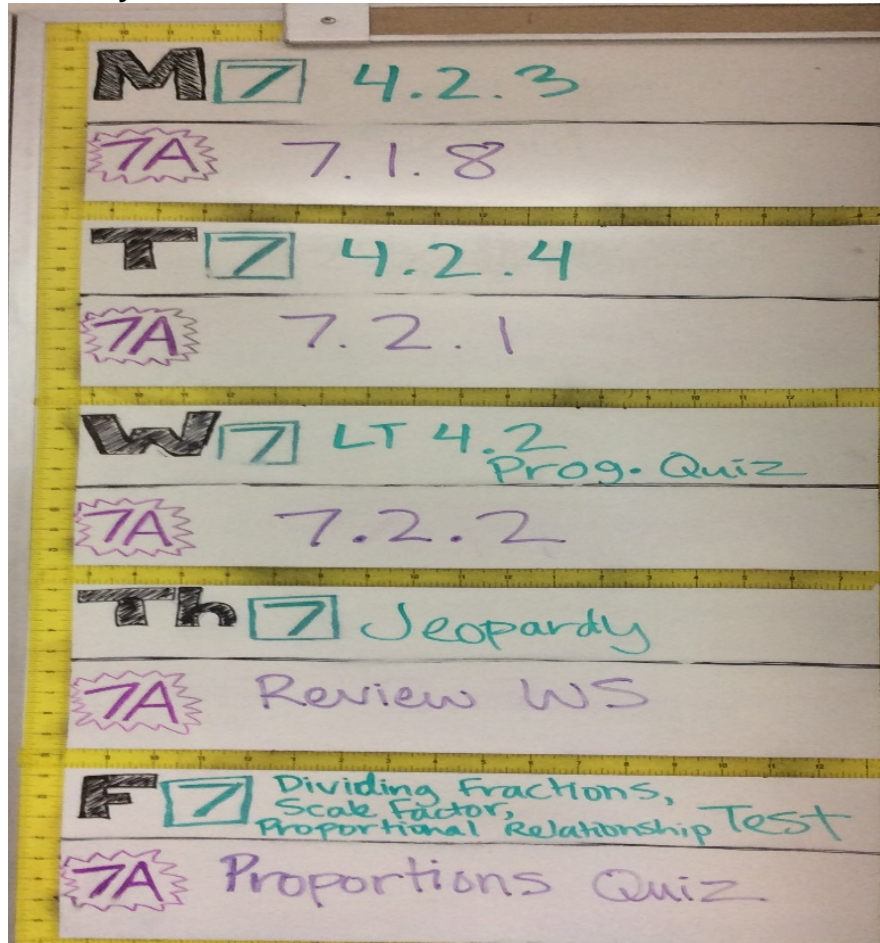 M 7 4.2.3
7A 7.1.8
T 7 4.2.4
7A 7.2.1
W 7 LT 4.2
Prog. Quiz
7A 7.2.2
Th 7 Jeopardy
7A Review WS
F 7 Dividing Fractions,
Scale Factor,
Proportional Relationship Test
7A Proportions Quiz